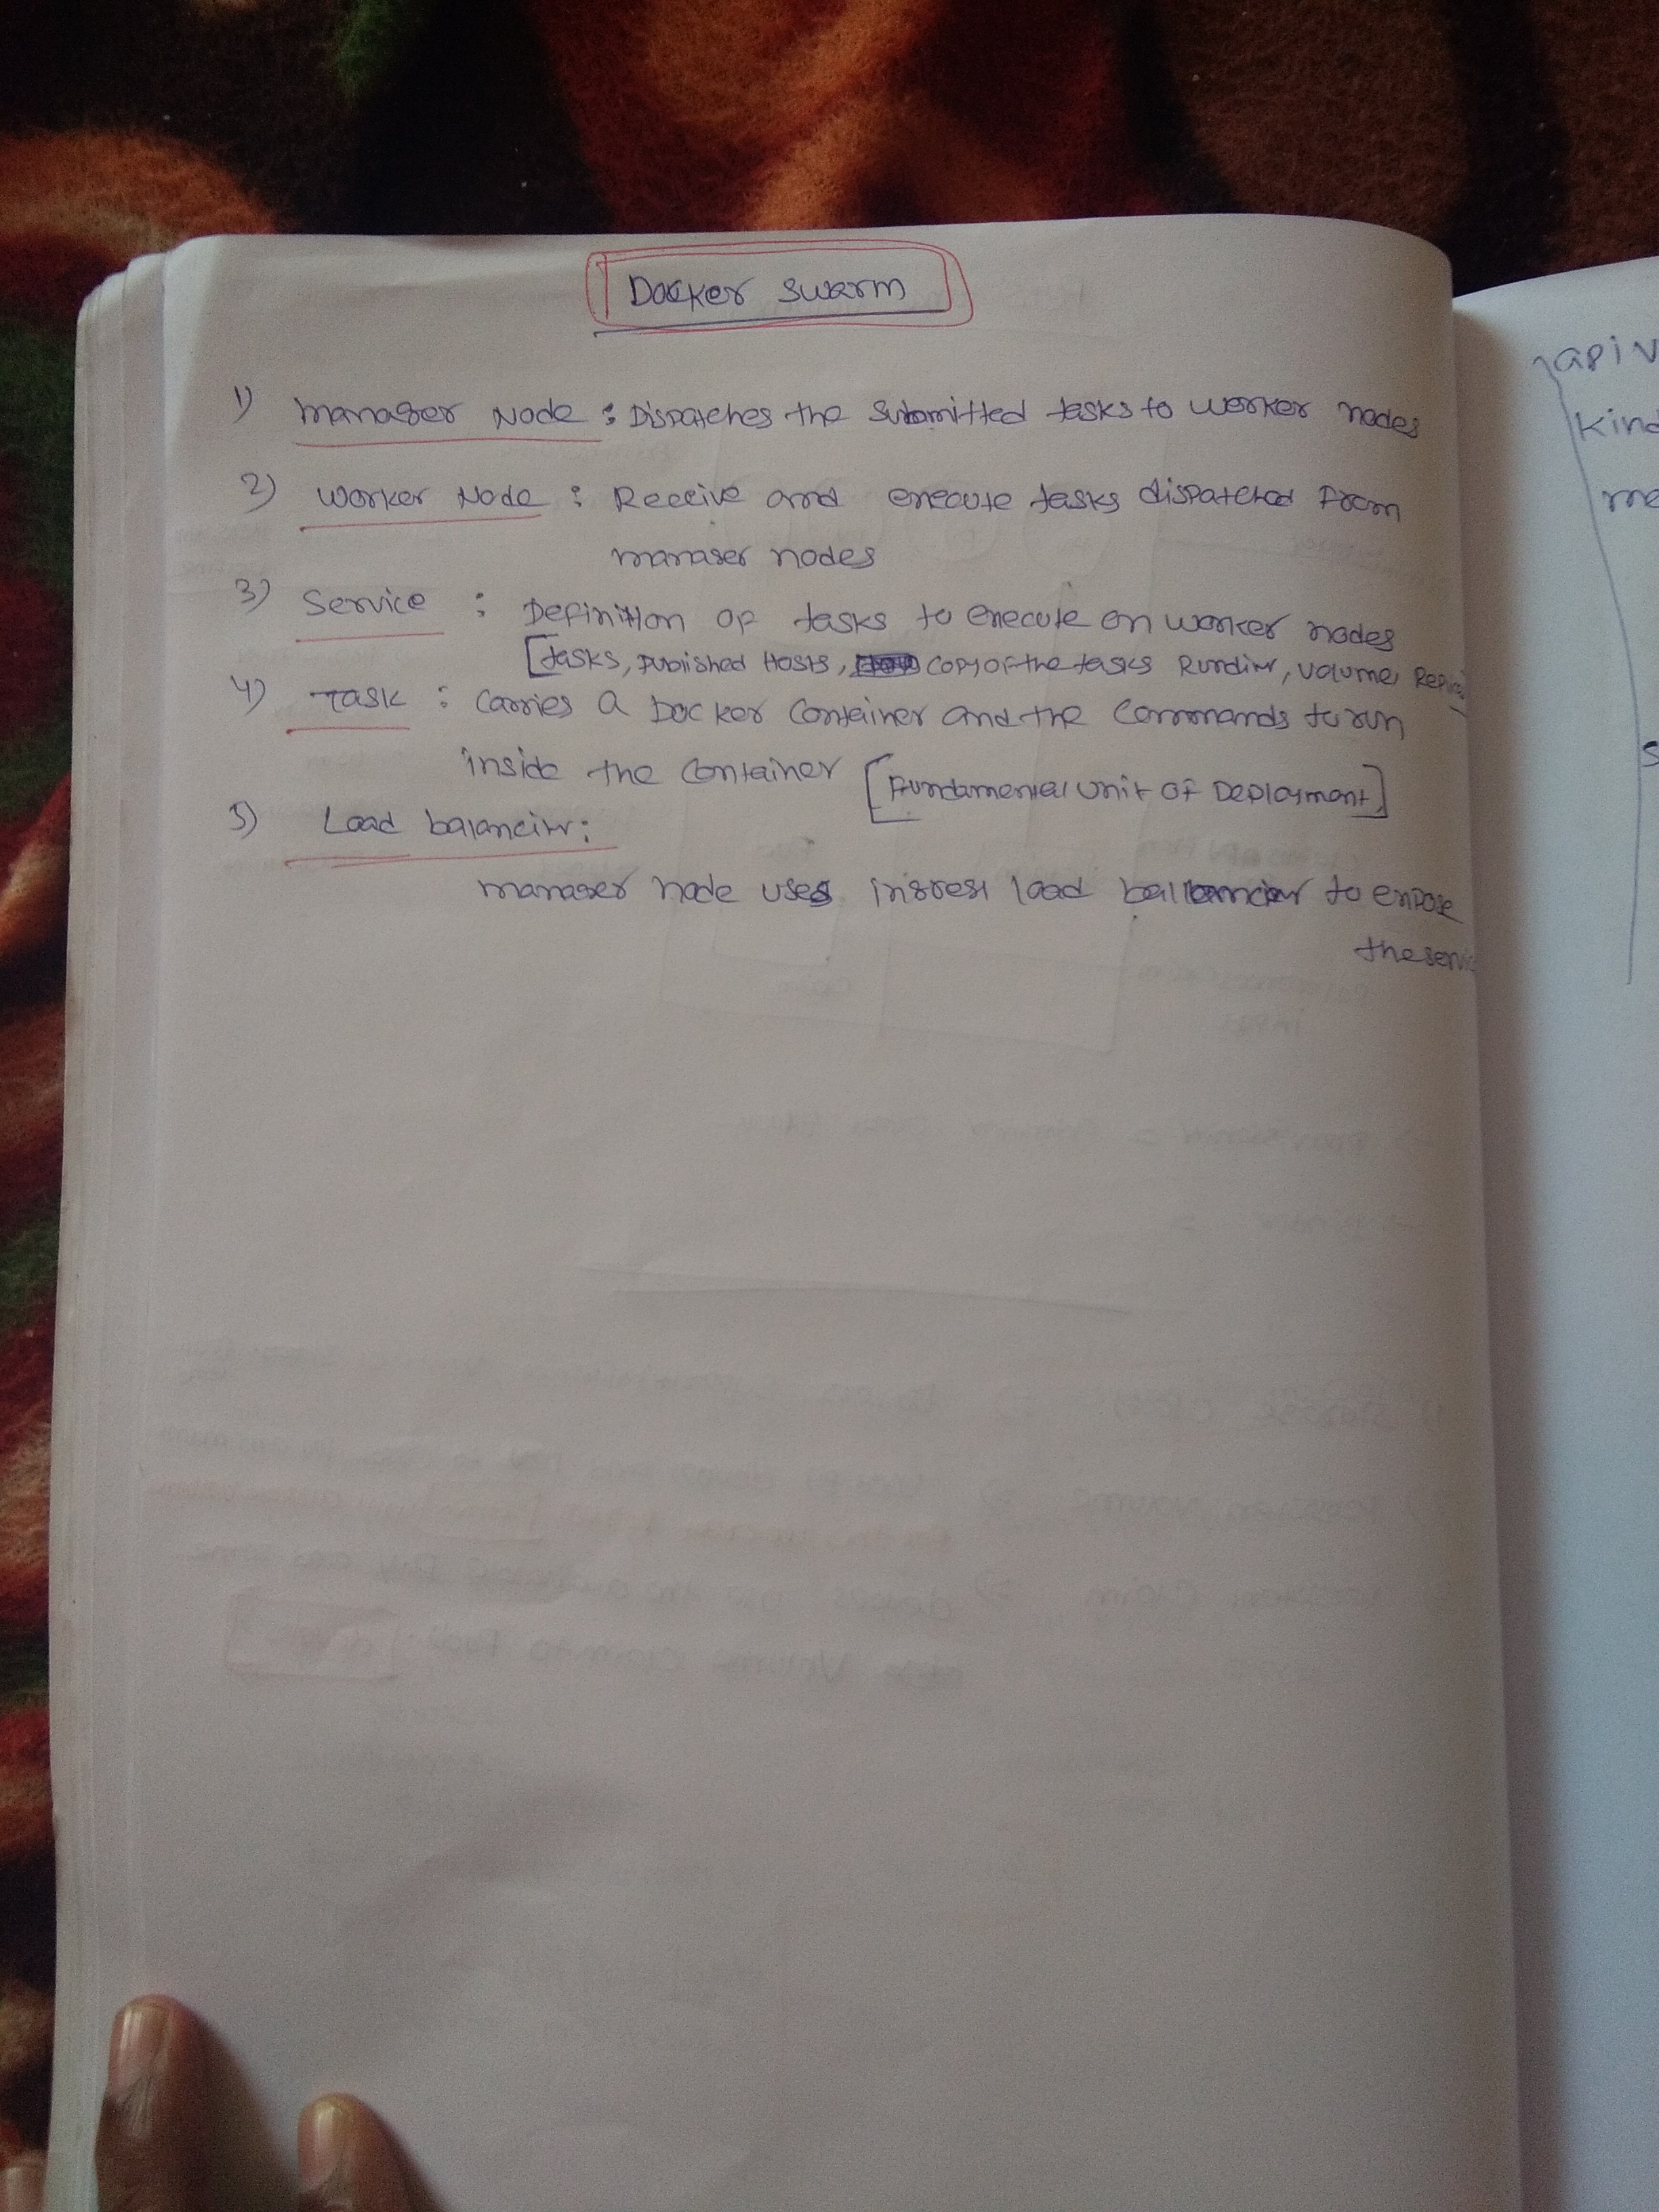 Docker Swarm
1) Manager Node : Dispatches the submitted tasks to worker nodes
2) Worker Node : Receive and execute tasks dispatched from
manager nodes
3) Service : Definition of tasks to execute on worker nodes
[tasks, published Hosts, copy of the tasks Running, volume,
4) Task : Carries a Docker Container and the Commands to run
inside the Container [Fundamental unit of Deployment]
5) Load balancing:
manager node uses ingress load to expose
the
api
kind
me
s